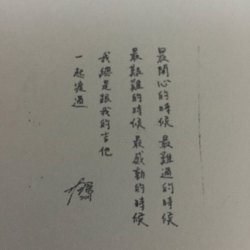 最開心的時候 最難過的時候
最艱難的時候 最感動的時候
我總是跟我的吉他
一起渡過